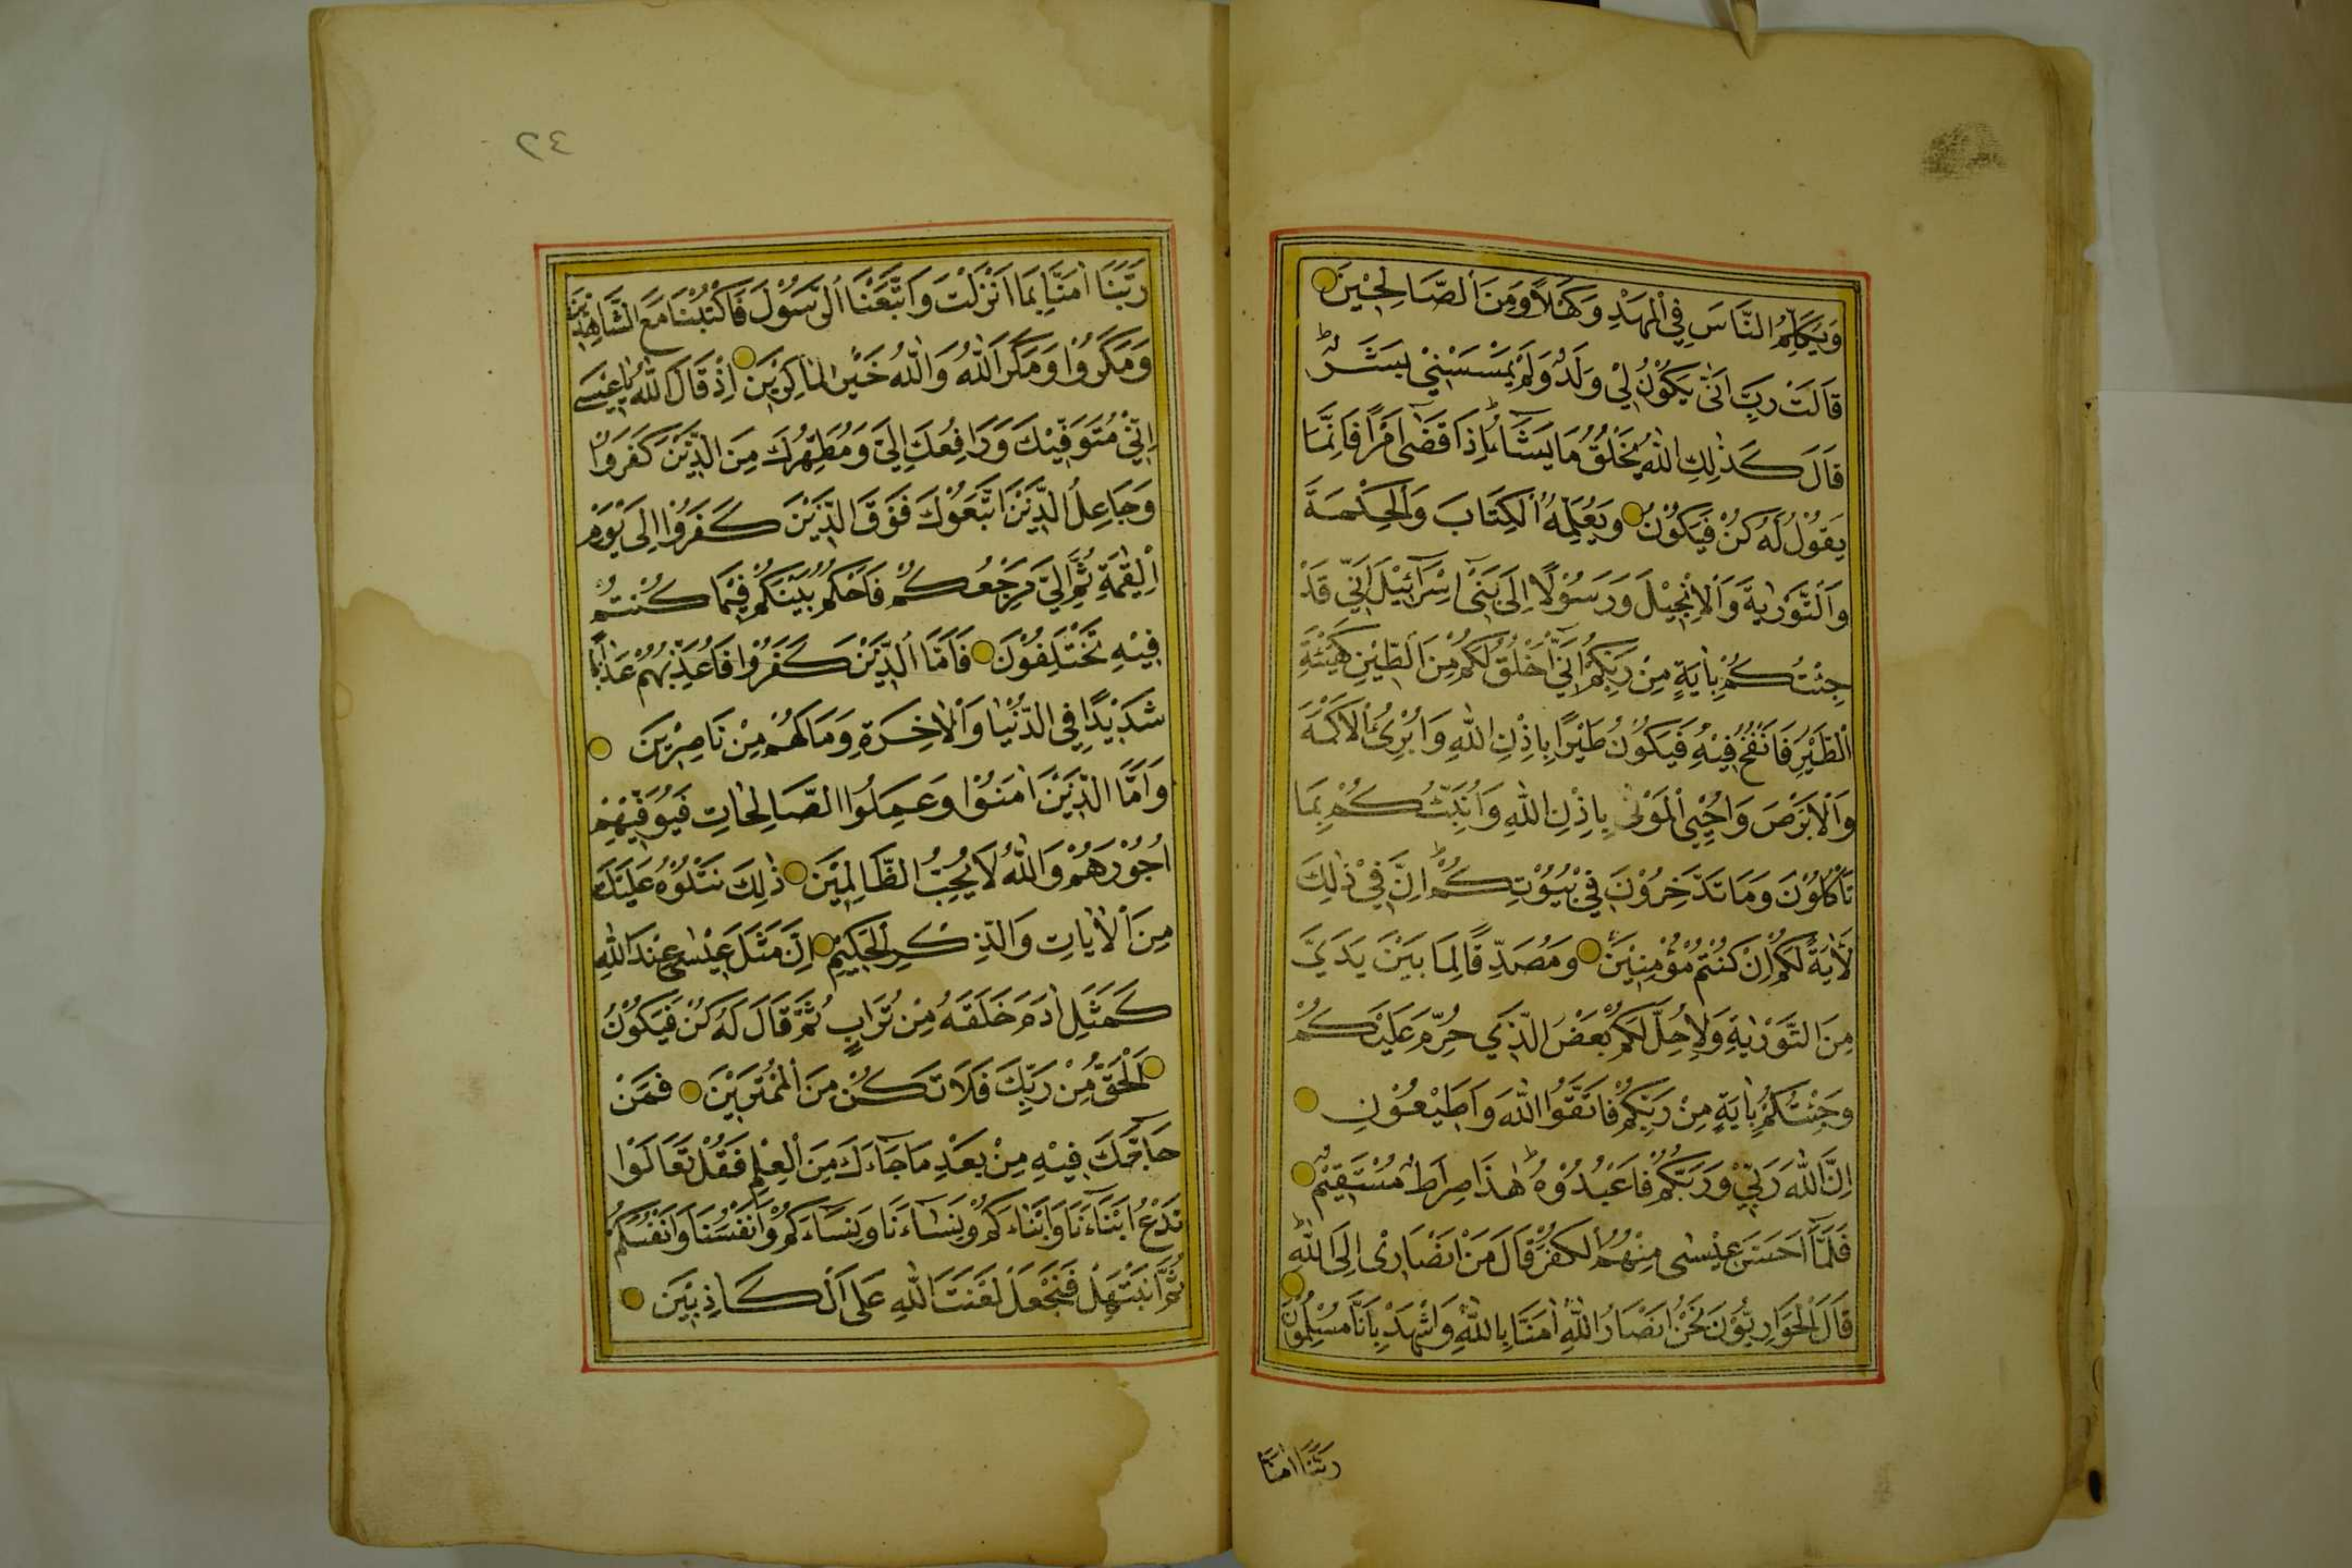 وَيُكَلِّمُ النَّاسَ فِي الْمَهْدِ وَكَهْلًا وَمِنَ الصَّالِحِينَ
قَالَتْ رَبِّ اَنّٰى يَكُونُ لِي وَلَدٌ وَلَمْ يَمْسَسْنِي بَشَرٌ ط
قَالَ كَذٰلِكِ اللّٰهُ يَخْلُقُ مَا يَشَآءُ ط اِذَا قَضٰٓى اَمْرًا فَاِنَّمَا
يَقُولُ لَهُ كُنْ فَيَكُونُ وَيُعَلِّمُهُ الْكِتَابَ وَالْحِكْمَةَ
وَالتَّوْرٰيةَ وَالْاِنْجِيلَ وَرَسُولًا اِلٰى بَنِٓي اِسْرَآئِيلَ اَنِّي قَدْ
جِئْتُكُمْ بِاٰيَةٍ مِنْ رَبِّكُمْ اَنِّٓي اَخْلُقُ لَكُمْ مِنَ الطِّينِ كَهَيْئَةِ
الطَّيْرِ فَاَنْفُخُ فِيهِ فَيَكُونُ طَيْرًا بِاِذْنِ اللّٰهِ وَاُبْرِئُ الْاَكْمَهَ
وَالْاَبْرَصَ وَاُحْيِي الْمَوْتٰى بِاِذْنِ اللّٰهِ وَاُنَبِّئُكُمْ بِمَا
تَاْكُلُونَ وَمَا تَدَّخِرُونَ فِي بُيُوتِكُمْ ط اِنَّ فِي ذٰلِكَ
لَاٰيَةً لَكُمْ اِنْ كُنْتُمْ مُؤْمِنِينَ وَمُصَدِّقًا لِمَا بَيْنَ يَدَيَّ
مِنَ التَّوْرٰيةِ وَلِاُحِلَّ لَكُمْ بَعْضَ الَّذِي حُرِّمَ عَلَيْكُمْ
وَجِئْتُكُمْ بِاٰيَةٍ مِنْ رَبِّكُمْ فَاتَّقُوا اللّٰهَ وَاَطِيعُونِ
اِنَّ اللّٰهَ رَبِّي وَرَبُّكُمْ فَاعْبُدُوهُ ط هٰذَا صِرَاطٌ مُسْتَقِيمٌ
فَلَمَّآ اَحَسَّ عِيسٰى مِنْهُمُ الْكُفْرَ قَالَ مَنْ اَنْصَارِٓى اِلَى اللّٰهِ ط
قَالَ الْحَوَارِيُّونَ نَحْنُ اَنْصَارُ اللّٰهِ اٰمَنَّا بِاللّٰهِ وَاشْهَدْ بِاَنَّا مُسْلِمُونَ
رَبَّنَا اٰمَنَّا
٢٤
رَبَّنَا اٰمَنَّا بِمَا اَنْزَلْتَ وَاتَّبَعْنَا الرَّسُولَ فَاكْتُبْنَا مَعَ الشَّاهِدِينَ
وَمَكَرُوا وَمَكَرَ اللّٰهُ وَاللّٰهُ خَيْرُ الْمَاكِرِينَ اِذْ قَالَ اللّٰهُ يَا عِيسٰى
اِنِّي مُتَوَفِّيكَ وَرَافِعُكَ اِلَيَّ وَمُطَهِّرُكَ مِنَ الَّذِينَ كَفَرُوا
وَجَاعِلُ الَّذِينَ اتَّبَعُوكَ فَوْقَ الَّذِينَ كَفَرُوا اِلٰى يَوْمِ
الْقِيٰمَةِ ثُمَّ اِلَيَّ مَرْجِعُكُمْ فَاَحْكُمُ بَيْنَكُمْ فِيمَا كُنْتُمْ
فِيهِ تَخْتَلِفُونَ فَاَمَّا الَّذِينَ كَفَرُوا فَاُعَذِّبُهُمْ عَذَابًا
شَدِيدًا فِي الدُّنْيَا وَالْاٰخِرَةِ وَمَا لَهُمْ مِنْ نَاصِرِينَ
وَاَمَّا الَّذِينَ اٰمَنُوا وَعَمِلُوا الصَّالِحَاتِ فَيُوَفِّيهِمْ
اُجُورَهُمْ وَاللّٰهُ لَا يُحِبُّ الظَّالِمِينَ ذٰلِكَ نَتْلُوهُ عَلَيْكَ
مِنَ الْاٰيَاتِ وَالذِّكْرِ الْحَكِيمِ اِنَّ مَثَلَ عِيسٰى عِنْدَ اللّٰهِ
كَمَثَلِ اٰدَمَ خَلَقَهُ مِنْ تُرَابٍ ثُمَّ قَالَ لَهُ كُنْ فَيَكُونُ
اَلْحَقُّ مِنْ رَبِّكَ فَلَا تَكُنْ مِنَ الْمُمْتَرِينَ فَمَنْ
حَآجَّكَ فِيهِ مِنْ بَعْدِ مَا جَآءَكَ مِنَ الْعِلْمِ فَقُلْ تَعَالَوْا
نَدْعُ اَبْنَآءَنَا وَاَبْنَآءَكُمْ وَنِسَآءَنَا وَنِسَآءَكُمْ وَاَنْفُسَنَا وَاَنْفُسَكُمْ
ثُمَّ نَبْتَهِلْ فَنَجْعَلْ لَعْنَتَ اللّٰهِ عَلَى الْكَاذِبِينَ